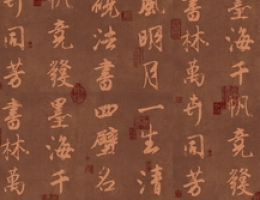 墨海千帆竞發
書林萬卉同芳
風明月一生清
硯法書四壁名
帆竞發墨海千
卉同芳書林萬